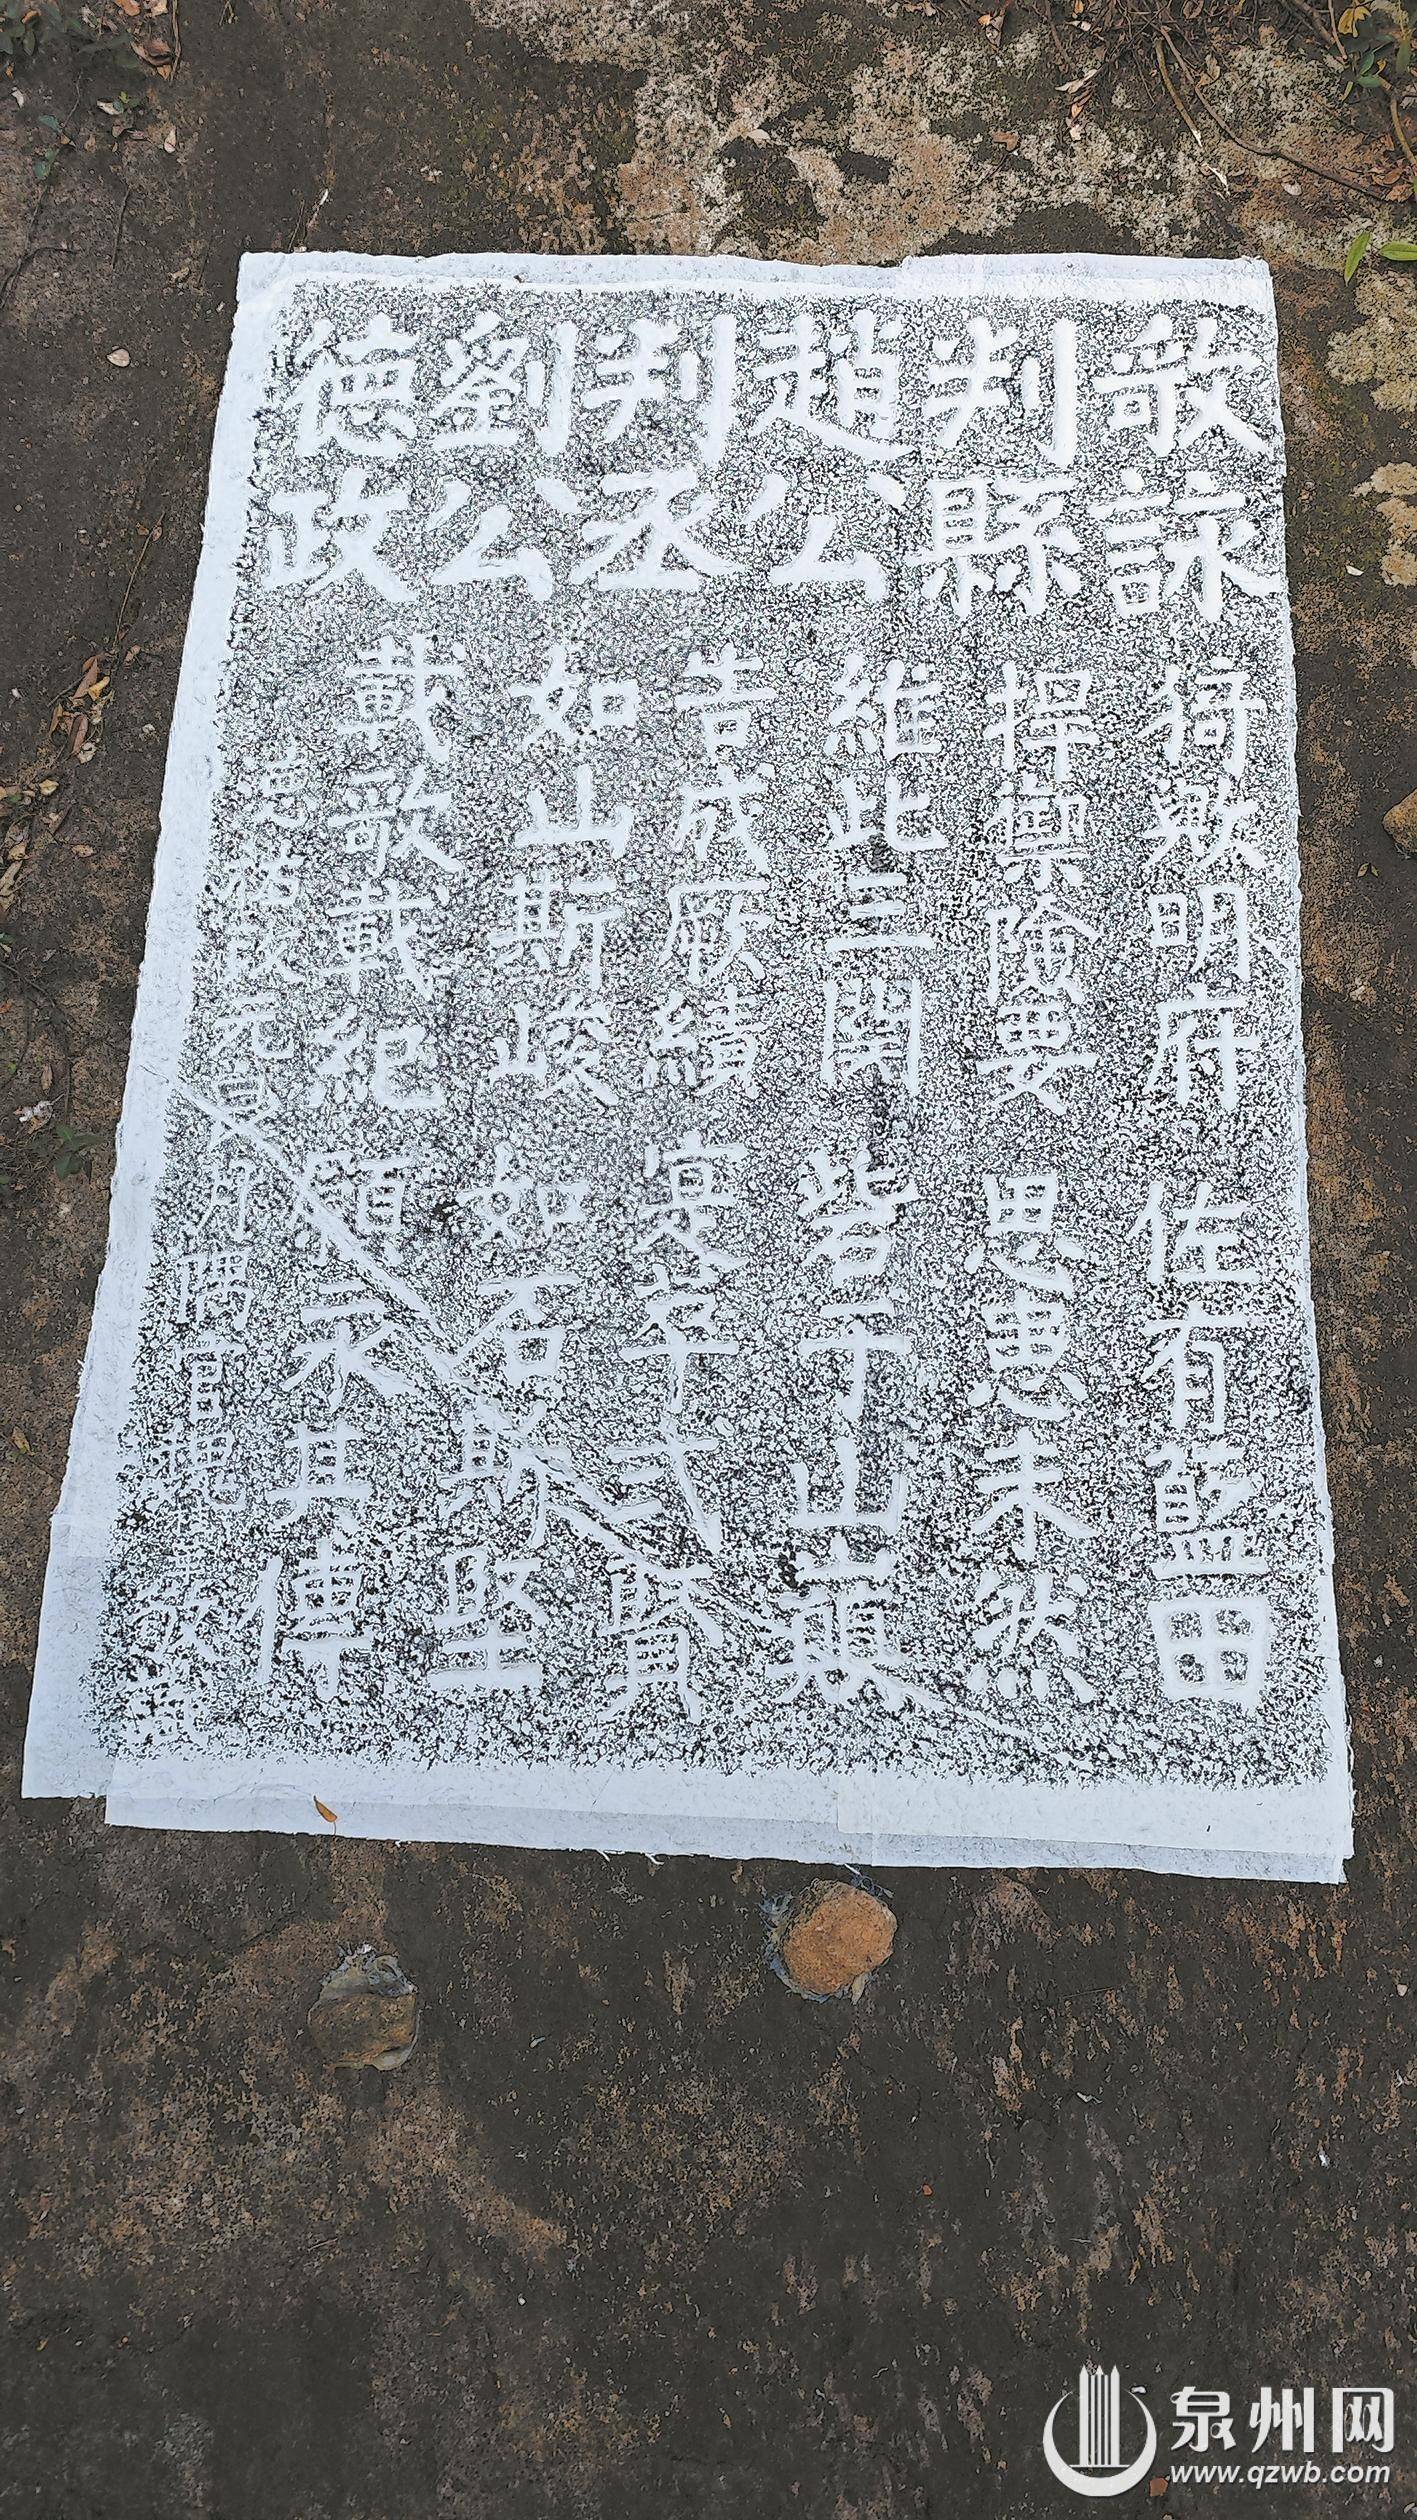 歌詠
判縣
趙公
判丞
劉公
德政
猗歟明府 佐有藍田
捍禦險要 思患未然
維此三關 砦于山巔
告成厥績 寔 弍賢
如山斯峻 如石斯堅
載歌載紀 願永其傳
德祐改元 月隅官
泉州网
www.qzwb.com